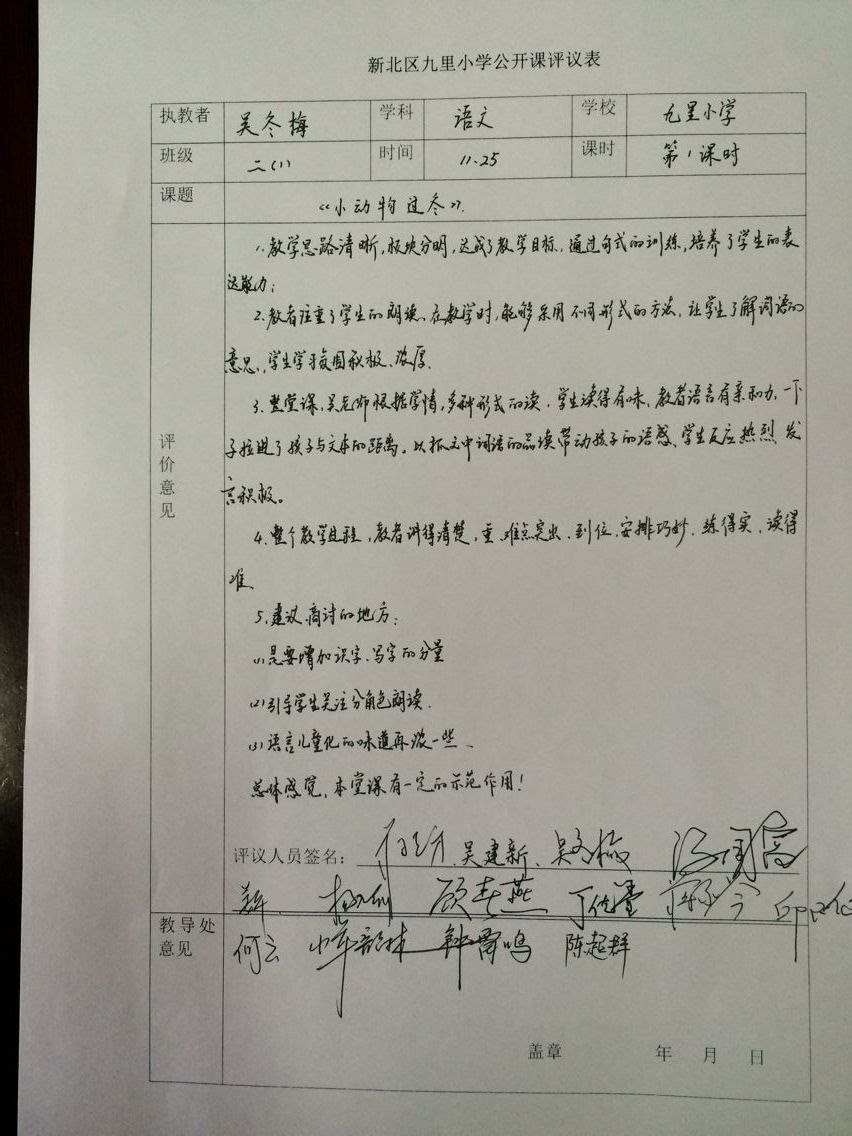 新北区九里小学公开课评议表
执教者 吴冬梅 学科 语文 学校 九里小学
班级 二(1) 时间 11.25 课时 第1课时
课题 《小动物过冬》.
评价意见
1.教学思路清晰,板块分明,达成了教学目标,通过句式的训练,培养了学生的表
达能力;
2.教者注重了学生的朗读、在教学时,能够采用不同形式的方法,让学生了解词语的
意思,学生学习氛围积极、浓厚.
3.整堂课,吴老师根据学情,多种形式的读,学生读得有味、教者语言有亲和力,一下
子拉进了孩子与文本的距离。以抓文中词语的品读带动孩子的语感、学生反应热烈、发
言积极。
4.整个教学过程,教者讲得清楚,重、难点突出、到位,安排巧妙,练得实、读得
准
5.建议商讨的地方:
(1)是要增加识字、写字的分量
(2)引导学生关注分角色朗读.
(3)语言儿童化的味道再浓一些、
总体感觉,本堂课有一定的示范作用!
评议人员签名: 吴建新、吴冬梅
顾春燕
教导处意见
何云 钟 鸣 陈起群
盖章 年 月 日